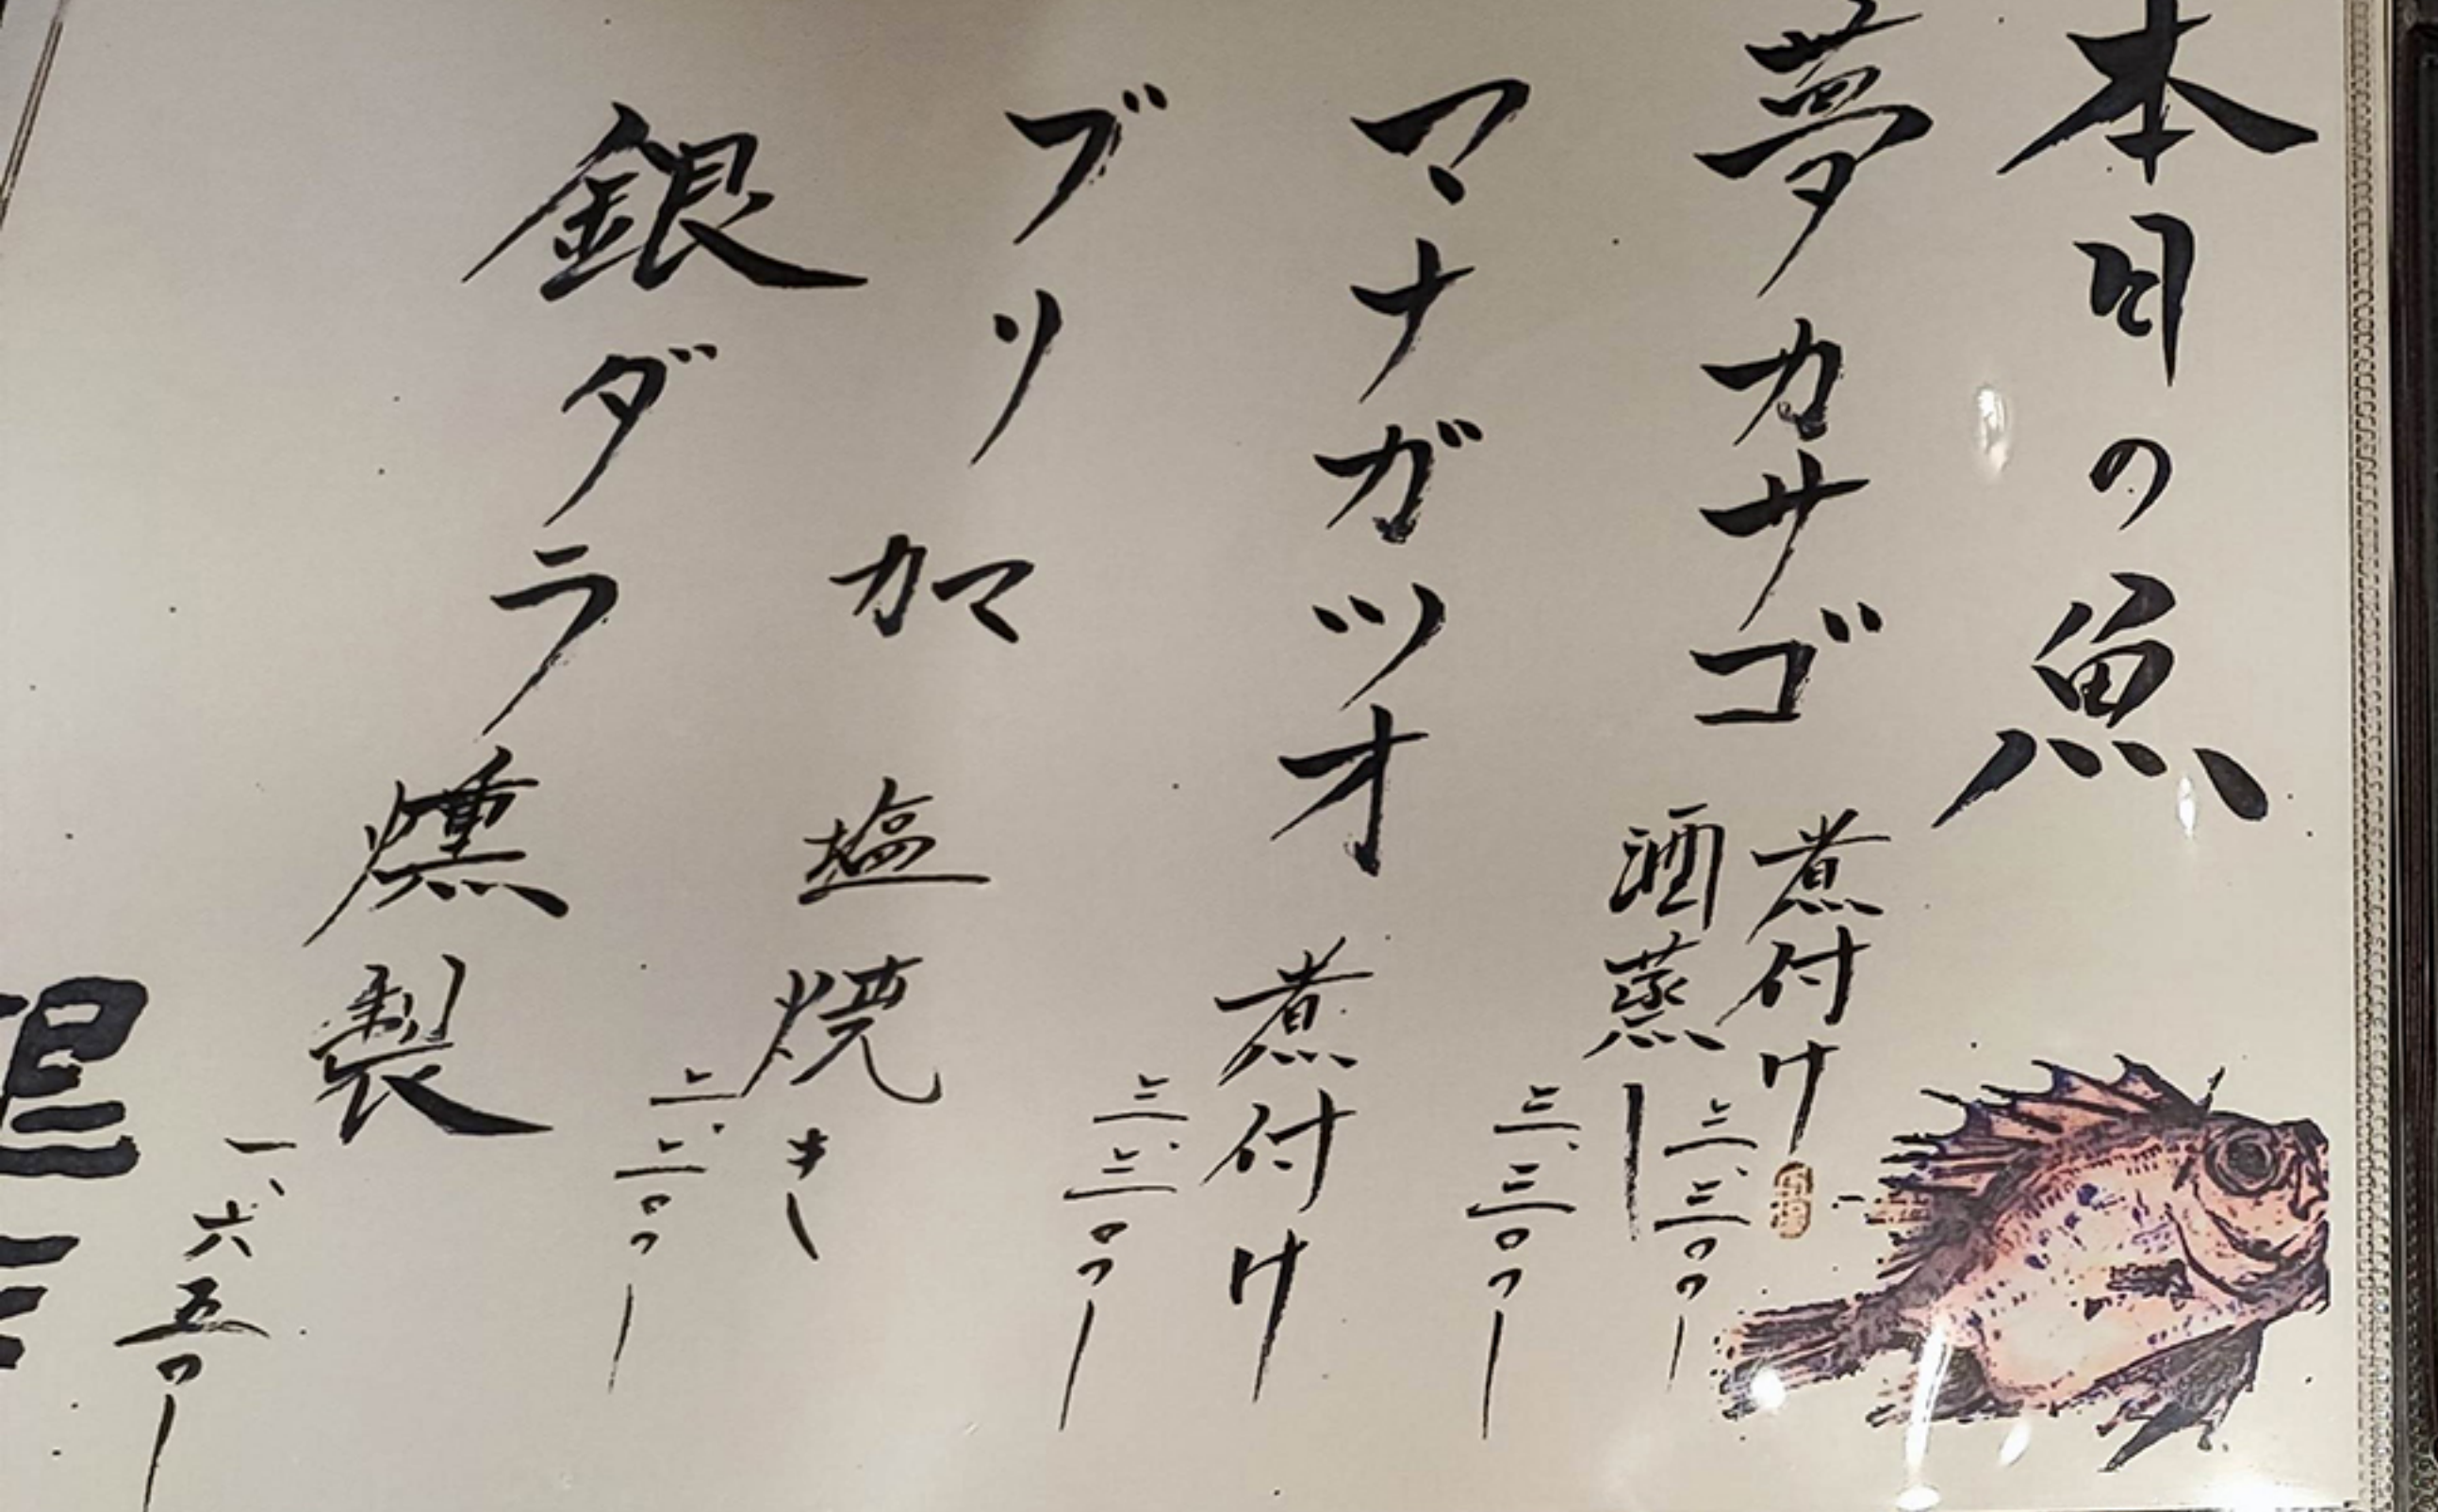 本日の魚
夢カサゴ
煮付け 三、三〇〇ー
酒蒸し 三、三〇〇ー
マナガツオ 煮付け 三、三〇〇ー
ブリカマ 塩焼き 二、二〇〇ー
銀ダラ 燻製 一、六五〇ー